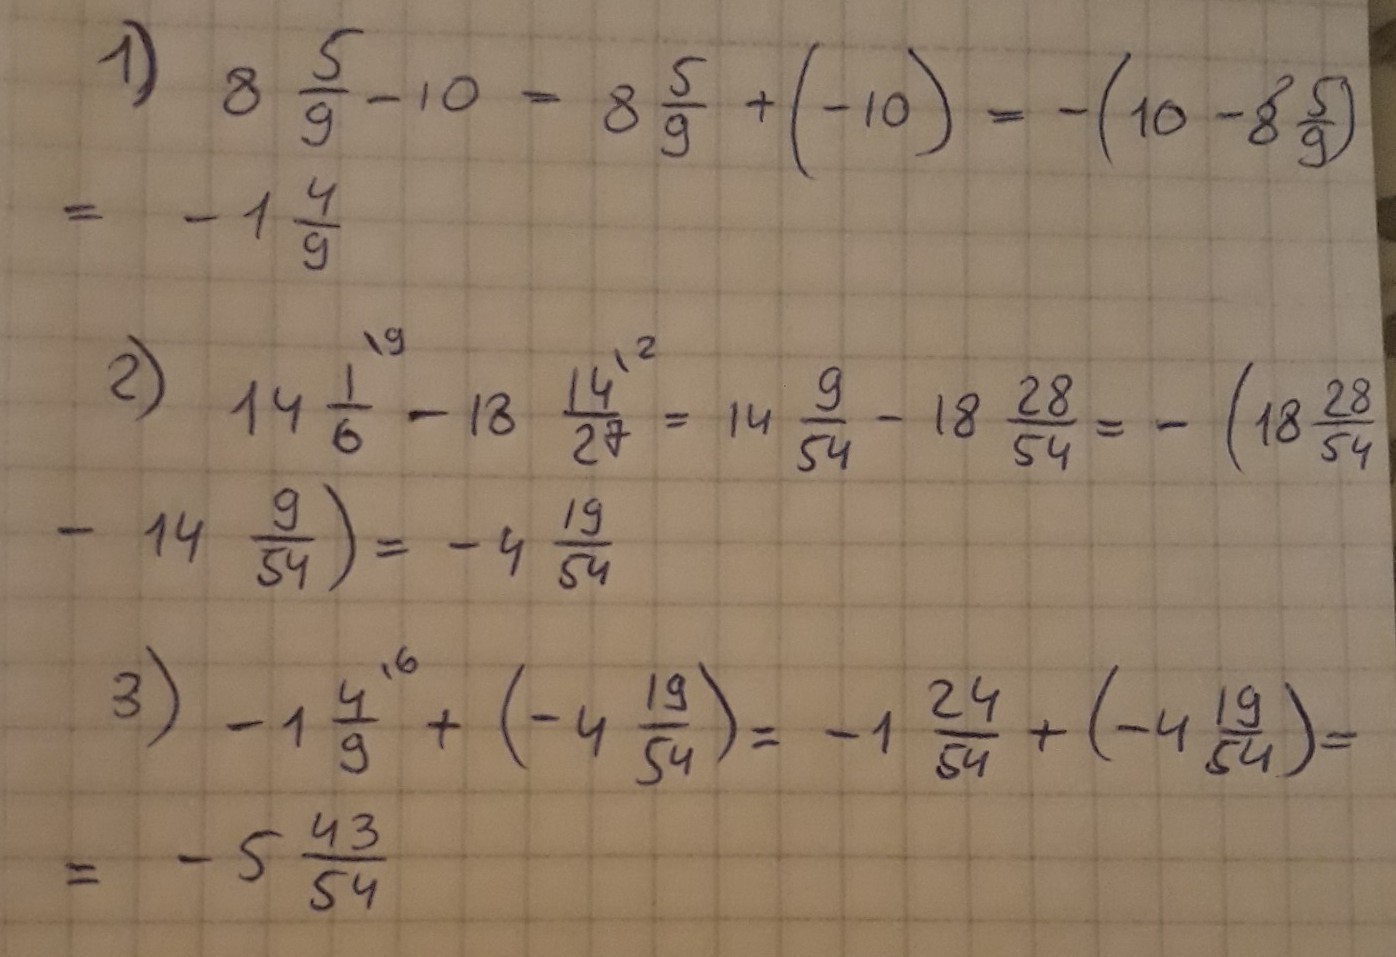 1) 8 5/9 - 10 = 8 5/9 + (-10) = -(10 - 8 5/9)
= -1 4/9
2) 14 1/6 \9 - 18 14/27 \2 = 14 9/54 - 18 28/54 = - (18 28/54
- 14 9/54) = -4 19/54
3) -1 4/9 \6 + (-4 19/54) = -1 24/54 + (-4 19/54) =
= -5 43/54